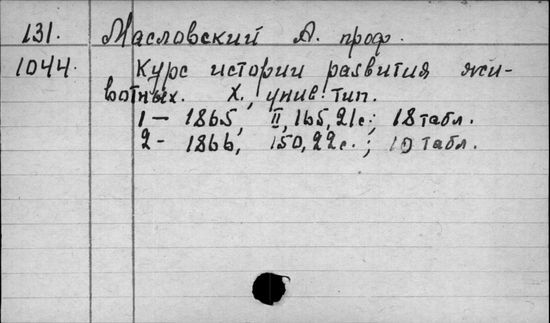 131. Масловский А. проф.
1044. Курс истории развития жи-
вотных. Х., унив. тип.
1 – 1865, II, 165, 21с.; 18 табл.
2 - 1866, 150, 22с.; 10 табл.